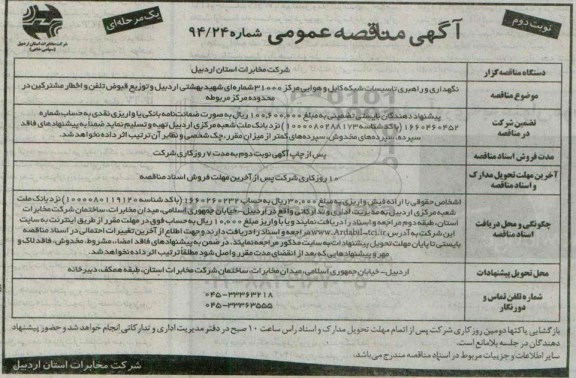 نوبت دوم
آگهی مناقصه عمومی شماره ۹۴/۲۴
یک مرحله‌ای
شرکت مخابرات استان اردبیل
(سهامی خاص)
دستگاه مناقصه گزار
شرکت مخابرات استان اردبیل
موضوع مناقصه
نگهداری و راهبری تاسیسات شبکه کابل و هوایی مرکز ۳۱۰۰۰ شماره‌ای شهید بهشتی اردبیل و توزیع قبوض تلفن و اخطار مشترکین در
محدوده مرکز مربوطه
تضمین شرکت
در مناقصه
پیشنهاد دهندگان بایستی تضمینی به مبلغ ۱۰۰,۶۰۰,۰۰۰ ریال به صورت ضمانت نامه بانکی یا واریزی نقدی به حساب شماره
۱۶۶۰۴۶۰۴۵۲ (باکد شناسه ۱۰۰۰۰۰۸۰۲۸۸۱۷۳) نزد بانک ملت شعبه مرکزی اردبیل تهیه و تسلیم نماید ضمنا به پیشنهادهای فاقد
سپرده، سپرده‌های مخدوش، سپرده‌های کمتر از میزان مقرر، چک شخصی و نظایر آن ترتیب اثر داده نخواهد شد.
مدت فروش اسناد مناقصه
پس از چاپ آگهی نوبت دوم به مدت ۷ روز کاری شرکت
آخرین مهلت تحویل مدارک
و اسناد مناقصه
۱۰ روز کاری شرکت پس از آخرین مهلت فروش اسناد مناقصه
چگونگی و محل دریافت
اسناد مناقصه
اشخاص حقوقی با ارائه فیش واریزی به مبلغ ۳۰,۰۰۰ ریال به حساب ۱۶۶۰۲۶۰۲۳۲ (باکد شناسه ۱۰۰۰۰۰۸۰۱۱۹۱۲۰) نزد بانک ملت
شعبه مرکزی اردبیل به مدیریت اداری و تدارکاتی واقع در اردبیل-خیابان جمهوری اسلامی، میدان مخابرات، ساختمان شرکت مخابرات
استان، طبقه دوم مراجعه و اسناد را دریافت نمایند و یا با واریز مبلغ ۱۰,۰۰۰ ریال به حساب فوق در مهلت مقرر از طریق اینترنت به سایت
این شرکت به آدرس www.Ardabil-tci.ir مراجعه و اسناد را دریافت دارند و جهت اطلاع از آخرین تغییرات احتمالی در اسناد مناقصه
بایستی تا پایان مهلت تحویل پیشنهادات به سایت مذکور مراجعه نمایند. در ضمن به پیشنهادهای فاقد امضاء، مشروط، مخدوش، فاقد لاک و
مهر و پیشنهادهایی که بعد از انقضای مدت مقرر واصل شود مطلقا ترتیب اثر داده نخواهد شد.
محل تحویل پیشنهادات
اردبیل- خیابان جمهوری اسلامی، میدان مخابرات، ساختمان شرکت مخابرات استان، طبقه همکف، دبیرخانه
شماره تلفن تماس و
دورنگار
۰۴۵-۳۳۳۶۳۲۱۸
۰۴۵-۳۳۳۶۳۵۵۵
بازگشایی پاکتها دومین روز کاری شرکت پس از اتمام مهلت تحویل مدارک و اسناد راس ساعت ۱۰ صبح در دفتر مدیریت اداری و تدارکاتی انجام خواهد شد و حضور پیشنهاد
دهندگان در جلسه بلامانع است.
سایر اطلاعات و جزییات مربوط در اسناد مناقصه مندرج می‌باشد.
شرکت مخابرات استان اردبیل